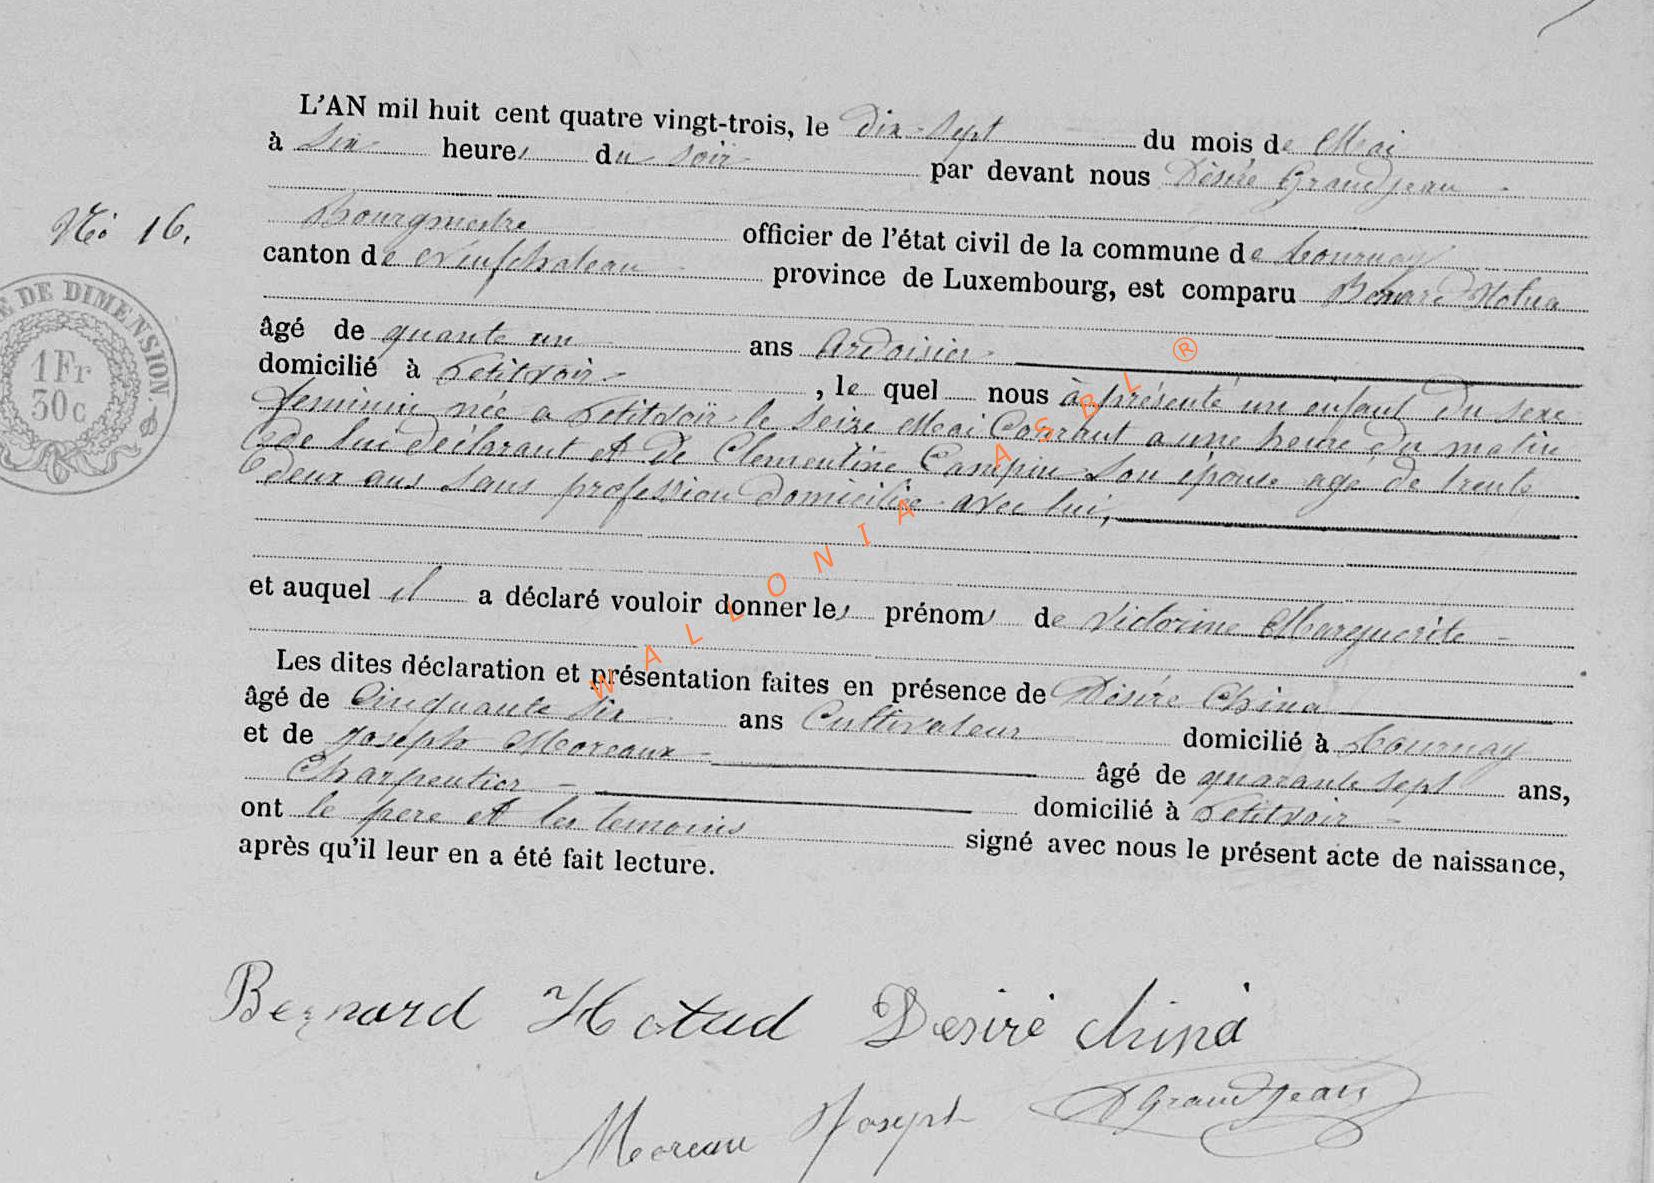 L'AN mil huit cent quatre vingt-trois, le dix-sept du mois de Mai
à Six heures du soir par devant nous Désiré Grandjean
Bourgmestre officier de l'état civil de la commune de Tournay
N° 16.
canton de Neufchateau province de Luxembourg, est comparu Bernard Hotua
âgé de quarante un ans Ardoisier
domicilié à Petitvoir, le quel nous à présenté un enfant du sexe
feminin née a Petitvoir le seize Mai Courrant a une heure du matin
de lui déclarant et de Clementine Campin son épouse agé de trente
deux ans sans profession domiciliée avec lui,
et auquel il a déclaré vouloir donner les prénoms de Victorine Marguerite
Les dites déclaration et présentation faites en présence de Désiré China
âgé de Cinquante six ans Cultivateur domicilié à Tournay
et de Joseph Moreaux âgé de quarante sept ans,
Charpentier domicilié à Petitvoir
ont le pere et les temoins signé avec nous le présent acte de naissance,
après qu'il leur en a été fait lecture.
E DE DIMENSION.
1 Fr
30c
WALLONIA ASBL ®
Bernard Hotud Desiré china
Moreau Joseph D Grandjean